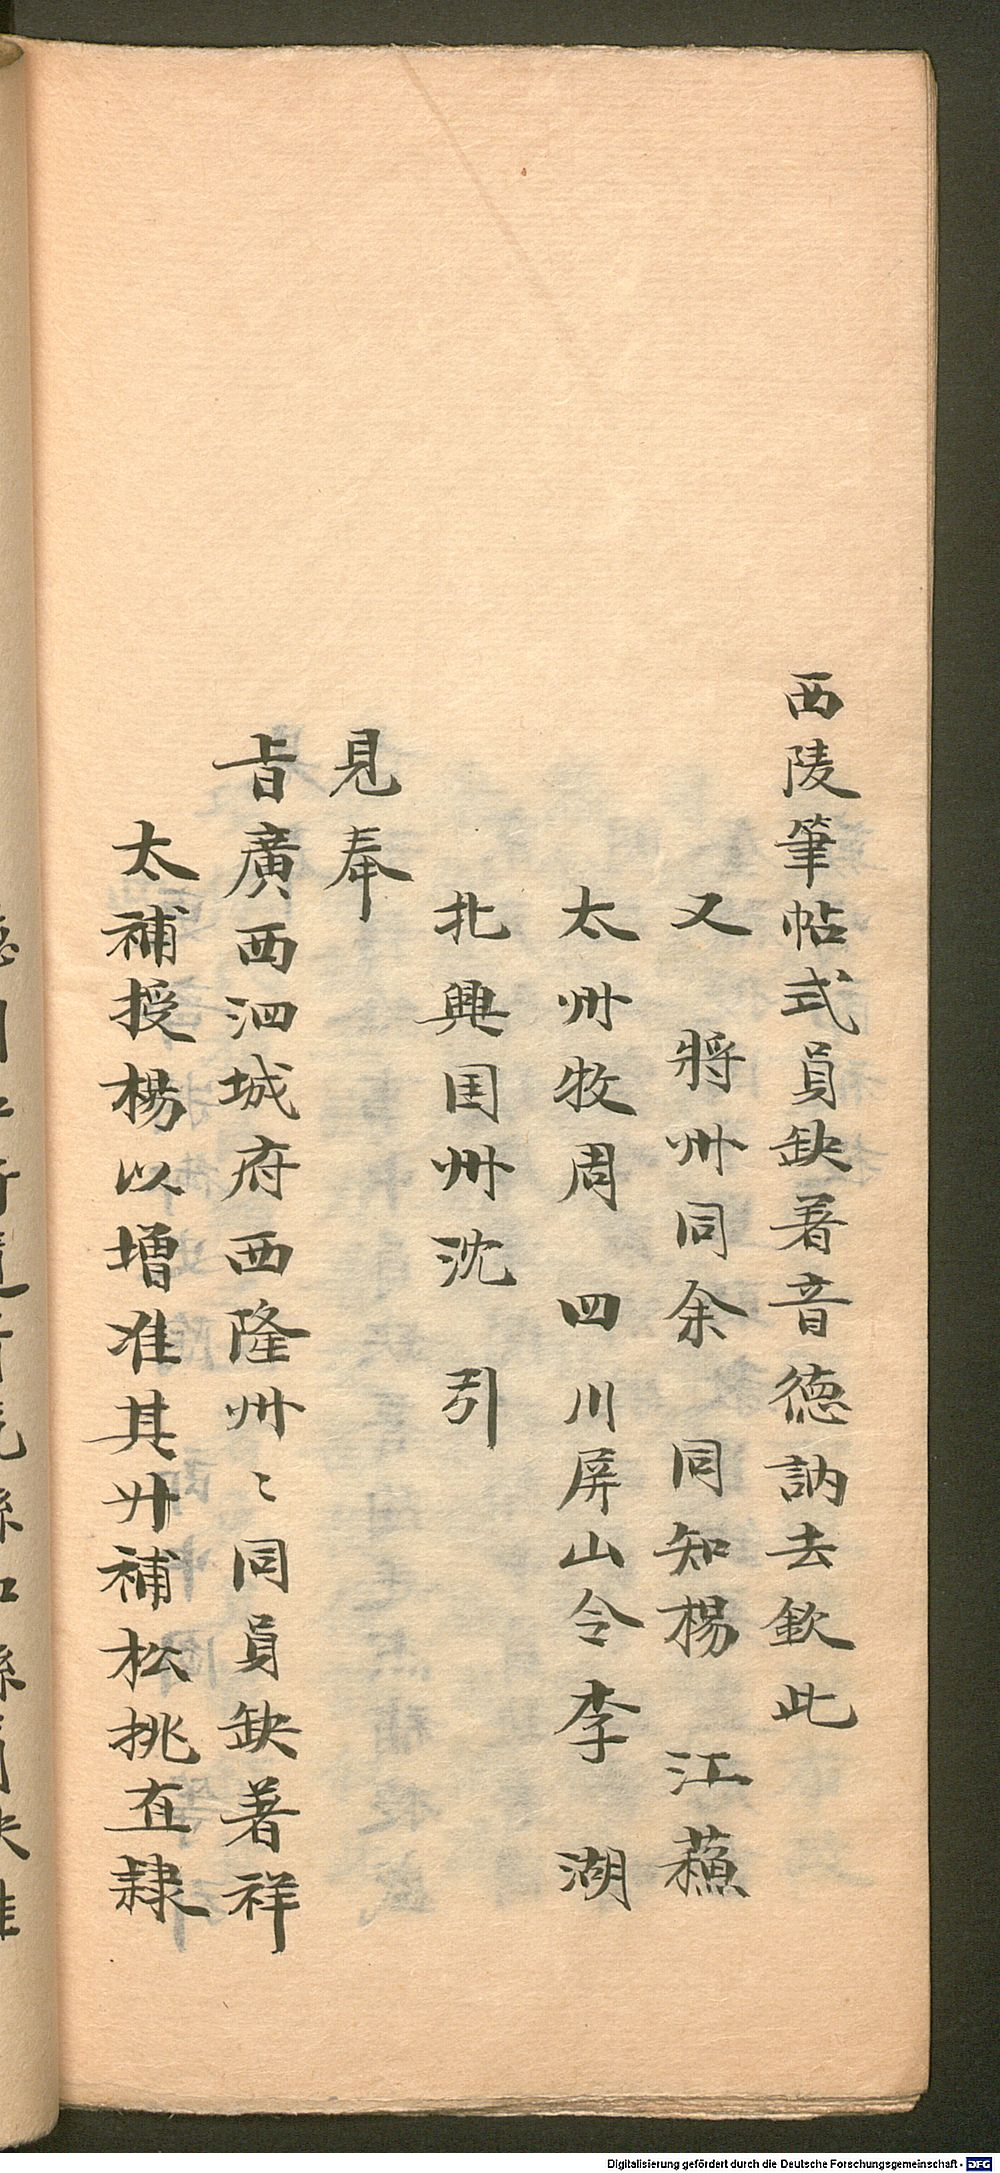 西陵筆帖式員缺著音德訥去欽此
又 將州同余 同知楊 江蘓
太州牧周 四川屏山令李 湖
北興国州沈 引
見奉
旨廣西泗城府西隆州〻同員缺著祥
太補授楊以增准其升補松挑直隸
Digitalisierung gefördert durch die Deutsche Forschungsgemeinschaft - DFG